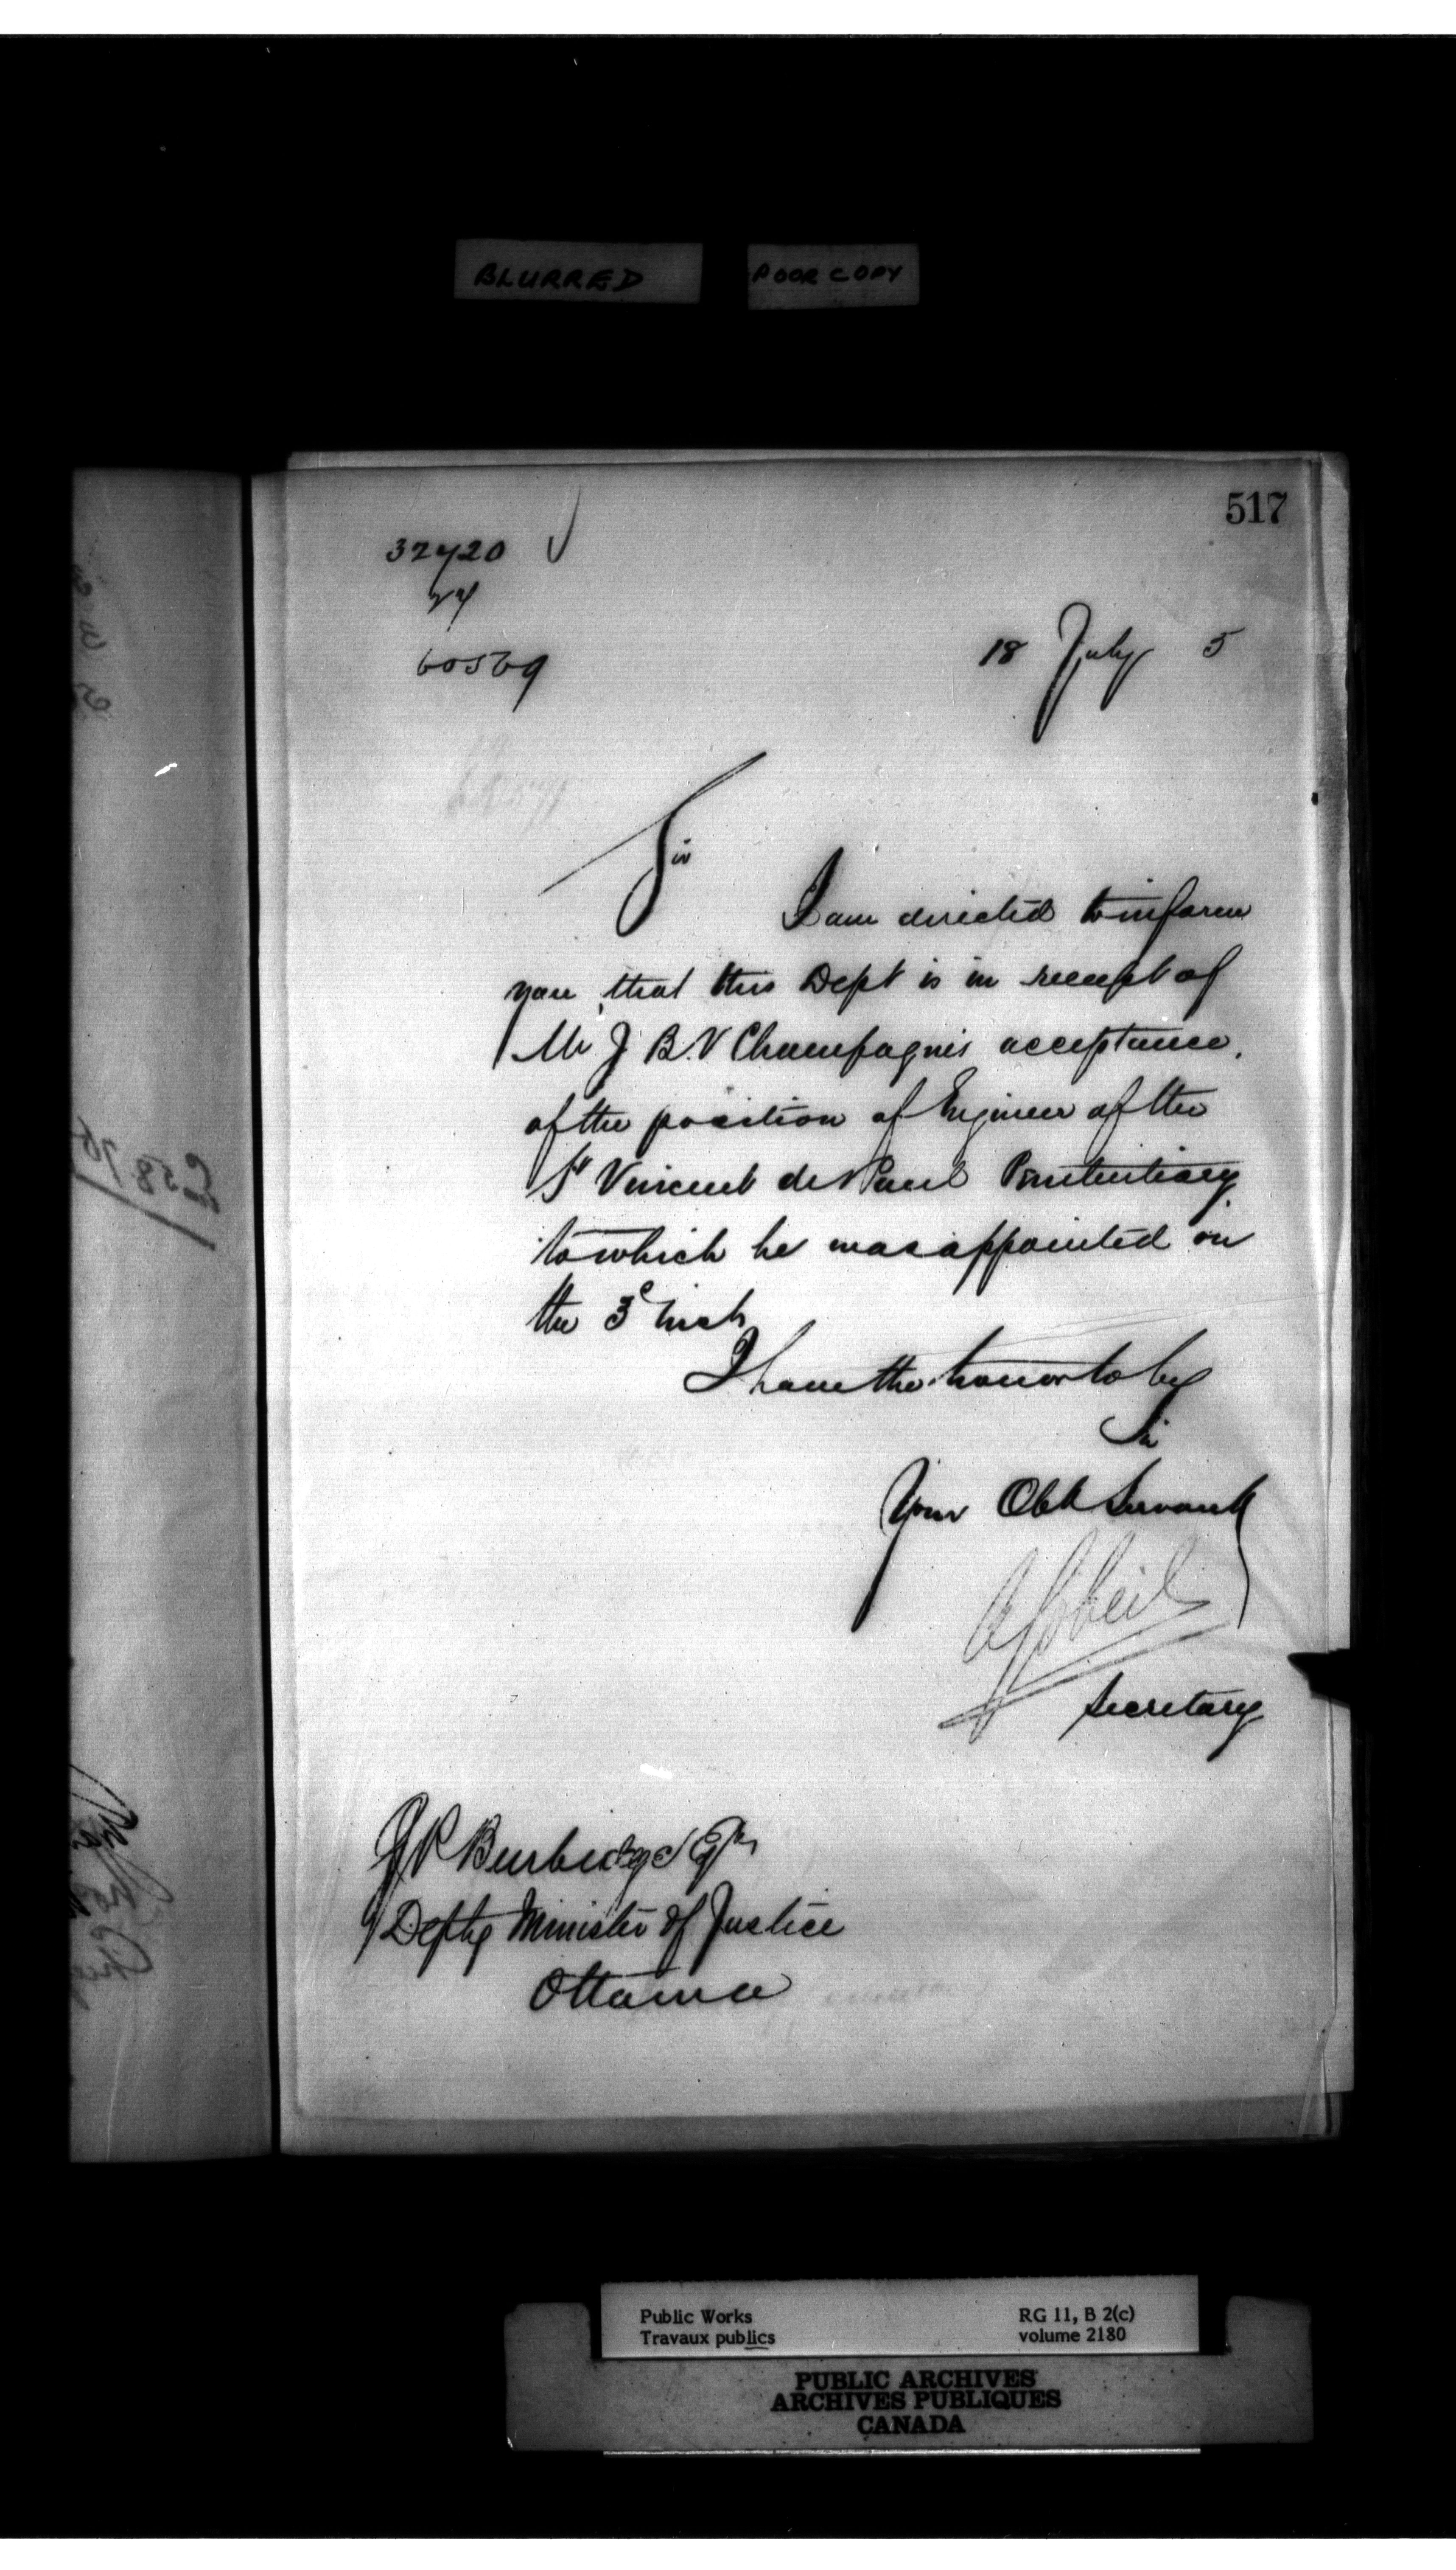 BLURRED POOR COPY
517
32720
60569
18 July 5
Sir
I am directed to inform
you, that this Dept is in receipt of
Mr J B. V Champagne's acceptance.
of the position of Engineer of the
St Vincent de Paul Penitentiary
to which he was appointed on
the 3d Inst
I have the honor to be
Sir
Your Obt Servant
A Gobeil
Secretary
G W Burbidge Esqr
Depty Minister of Justice
Ottawa
Public Works RG 11, B 2(c)
Travaux publics volume 2180
PUBLIC ARCHIVES
ARCHIVES PUBLIQUES
CANADA